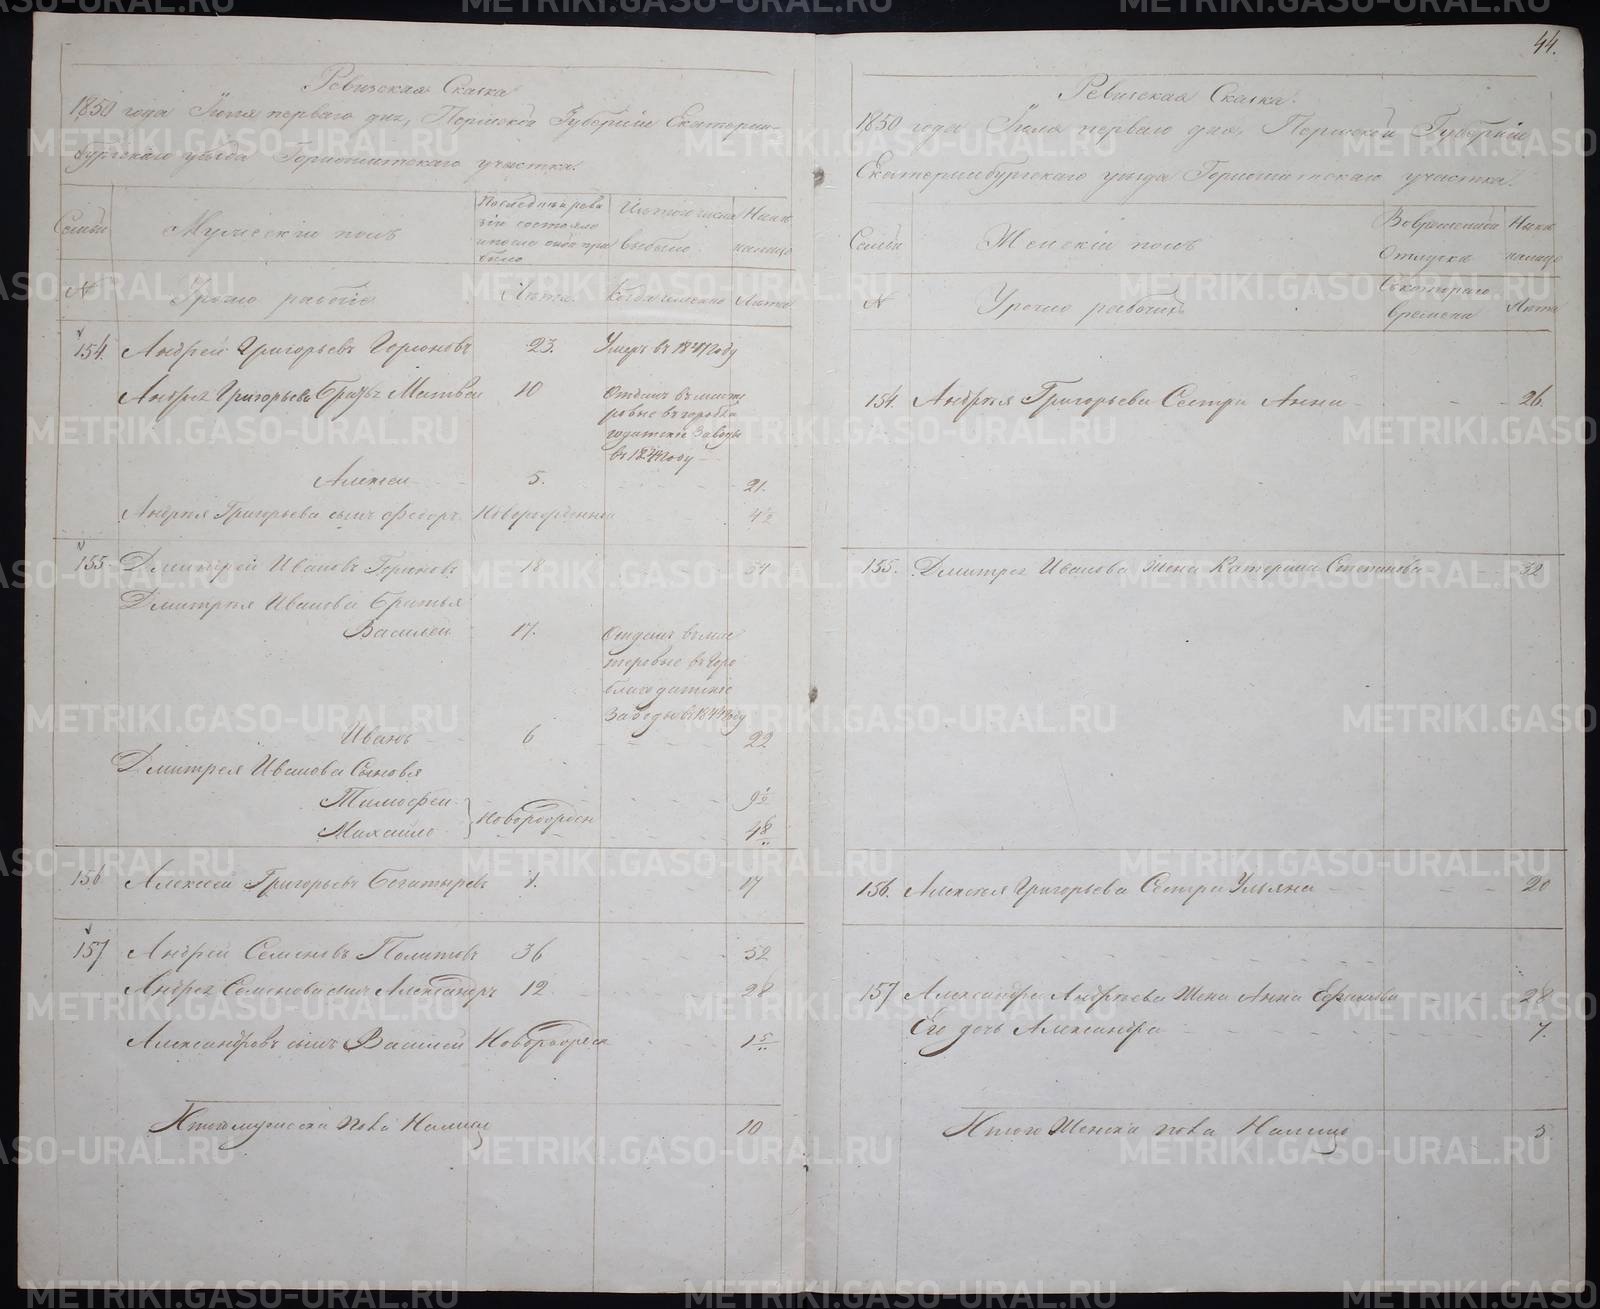 44.
Ревизская Сказка
1850 года Июля перваго дня, Пермской Губернiи Екатерин-
бургскаго уѣзда Горнощитскаго участка.
Семьи
Мужескiй полъ
Последней реви
зiи состояло
и после онаго при
было
Изъ того числа
выбыло
Нынѣ
налицо
№
Урочно рабочiе
Лѣта.
Когда именно
Лѣта
154. Андрей Григорьевъ Горюновъ 23. Умеръ въ 1841 году
Андрея Григорьева Братъ Матвей 10 Отданъ въ масте
ровые въ горобла
годатскiе Заводы
въ 1844 году
Алексей 5. 21.
Андрея Григорьева сынъ Федоръ Новорожденной 4 1/2
155 Дмитрей Ивановъ Горюновъ 18 34
Дмитрея Иванова Братья
Василей 17. Отданъ въ мас
теровые въ Горо
благодатскiе
Заводы въ 1844 году
Иванъ 6 22
Дмитрея Иванова Сыновья
Тимофеи 9 1/2
Михайло Новорожден 4 8
156 Алексей Григорьевъ Богатыревъ 1. 17
157 Андрей Семеновъ Политовъ 36 52
Андрея Семенова сынъ Александръ 12 28
Александровъ сынъ Василей Новорожден 1 5
Итого мужеска пола Налицо 10
Ревизская Сказка.
1850 года Июля перваго дня, Пермской Губернiи
Екатеринбургскаго уѣзда Горнощитскаго участка.
Семьи
Женскiй полъ
Во временной
Отлучке
Нынѣ
налицо
№
Урочно рабочихъ
Съ котораго
времени
Лѣта
154. Андрея Григорьева Сестра Анна 26.
155. Дмитрея Иванова жена Катерина Степанова 32
156. Алексея Григорьева Сестра Ульяна 20
157 Александра Андреева Жена Анна Ефимова 28
Его дочь Александра 7.
Итого Женска пола Налицо 5
METRIKI.GASO-URAL.RU